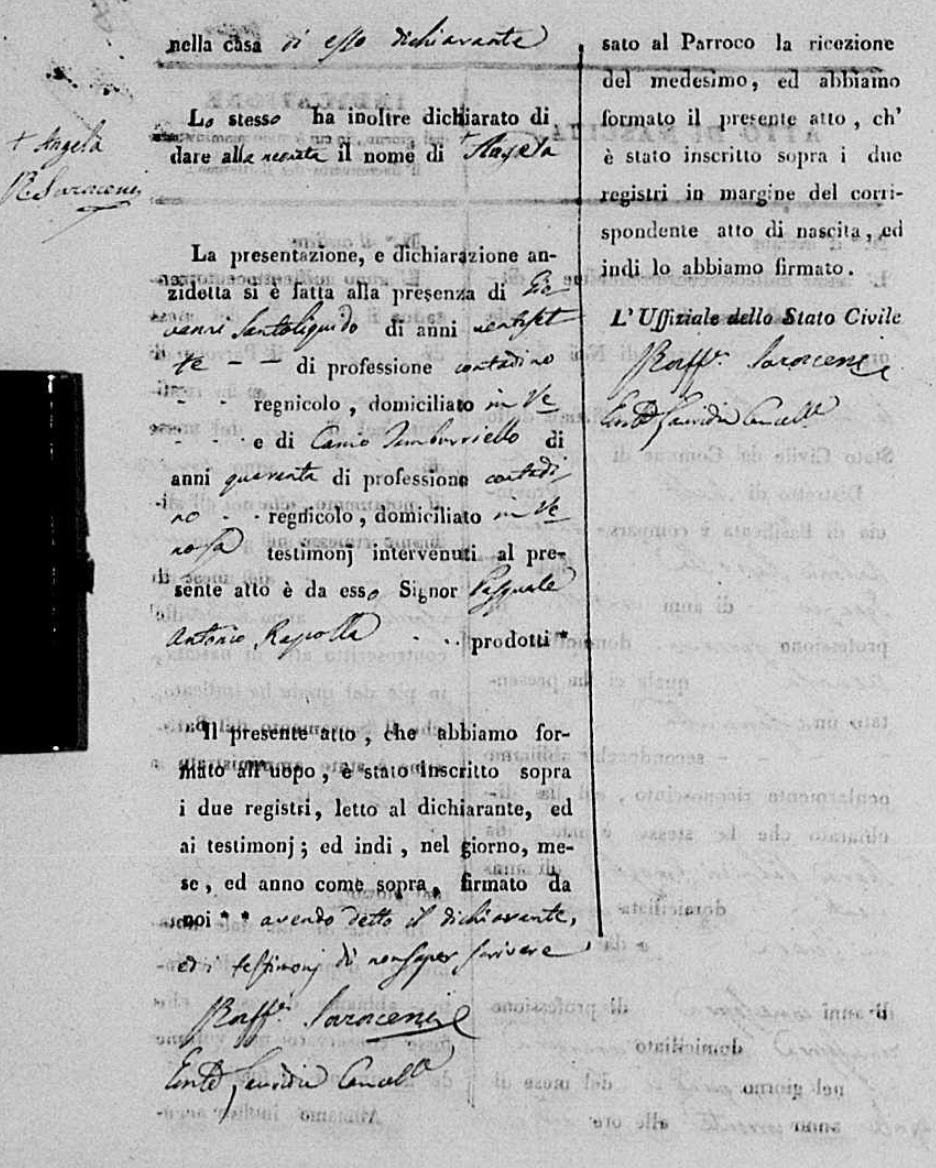 + Angela
R Saraceni
nella casa di esso dichiarante
Lo stesso ha inoltre dichiarato di
dare alla neonata il nome di + Angela
La presentazione, e dichiarazione an-
zidetta si è fatta alla presenza di Gio
vanni Santoliquido di anni ventiset
te - - di professione contadino
- - regnicolo, domiciliato in Ve
- - - e di Canio Tamburriello di
anni quaranta di professione contadi
no - - regnicolo, domiciliato in Ve
nosa testimonj intervenuti al pre-
sente atto è da esso Signor Pasquale
Antonio Rapolla - - prodotti *
Il presente atto, che abbiamo for-
mato all'uopo, è stato inscritto sopra
i due registri, letto al dichiarante, ed
ai testimonj; ed indi, nel giorno, me-
se, ed anno come sopra, firmato da
noi * * avendo detto il dichiarante,
ed i testimonj di non saper scrivere
Raff.e Saraceni
Cancell.e
sato al Parroco la ricezione
del medesimo, ed abbiamo
formato il presente atto, ch'
è stato inscritto sopra i due
registri in margine del corri-
spondente atto di nascita, ed
indi lo abbiamo firmato.
L'Uffiziale dello Stato Civile
Raff.e Saraceni
Cancell.e